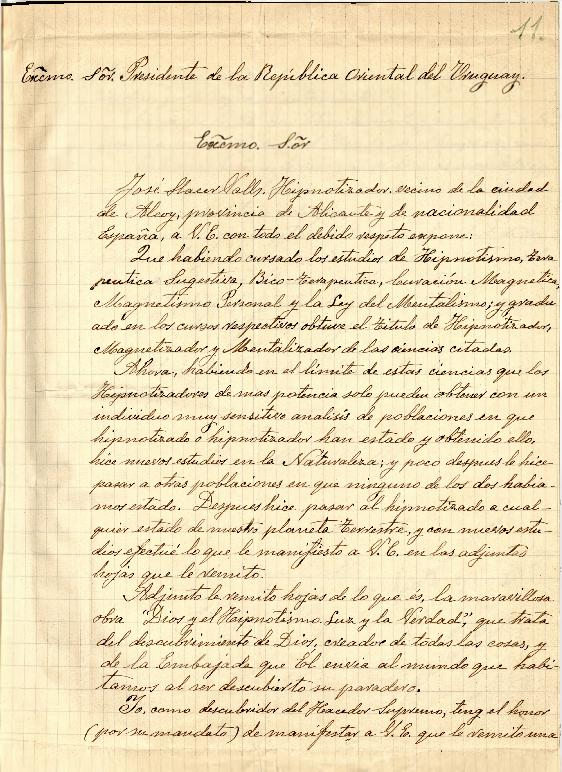 11.
Exc̃mo. Sõr. Presidente de la República Oriental del Uruguay.
Exc̃mo. Sõr
José Llacer Valls, Hipnotizador, vecino de la ciudad
de Alcoy, provincia de Alicante y de nacionalidad
España, a V. E. con todo el debido respeto expone:
Que habiendo cursado los estudios de Hipnotismo, Tera
peutica Sugestiva, Bico-Terapeutica, Curación Magnetica,
Magnetismo Personal y la Ley del Mentalismo; y gradu
ado en los cursos respectivos obtuve el Titulo de Hipnotizador,
Magnetizador y Mentalizador de las ciencias citadas.
Ahora, habiendo en el límite de estas ciencias que los
Hipnotizadores de mas potencia solo pueden obtener con un
individuo muy sensitivo analisis de poblaciones en que
hipnotizado o hipnotizador han estado y obtenido ello,
hice nuevos estudios en la Naturaleza; y poco despues le hice
pasar a otras poblaciones en que ninguno de los dos habia-
mos estado. Despues hice pasar al hipnotizado a cual-
quier estado de nuestro planeta Terrestre, y con nuevos estu-
dios efectué lo que le manifiesto a V. E. en las adjuntas
hojas que le remito.
Adjunto le remito hojas de lo que es, la maravillosa
obra "Dios y el Hipnotismo, Luz y la Verdad", que trata
del descubrimiento de Dios, creador de todas las cosas, y
de la Embajada que El envia al mundo que habi-
tamos al ser descubierto su paradero.
Yo, como descubridor del Hacedor Supremo, teng el honor
(por su mandato) de manifestar a V. E. que le remito una